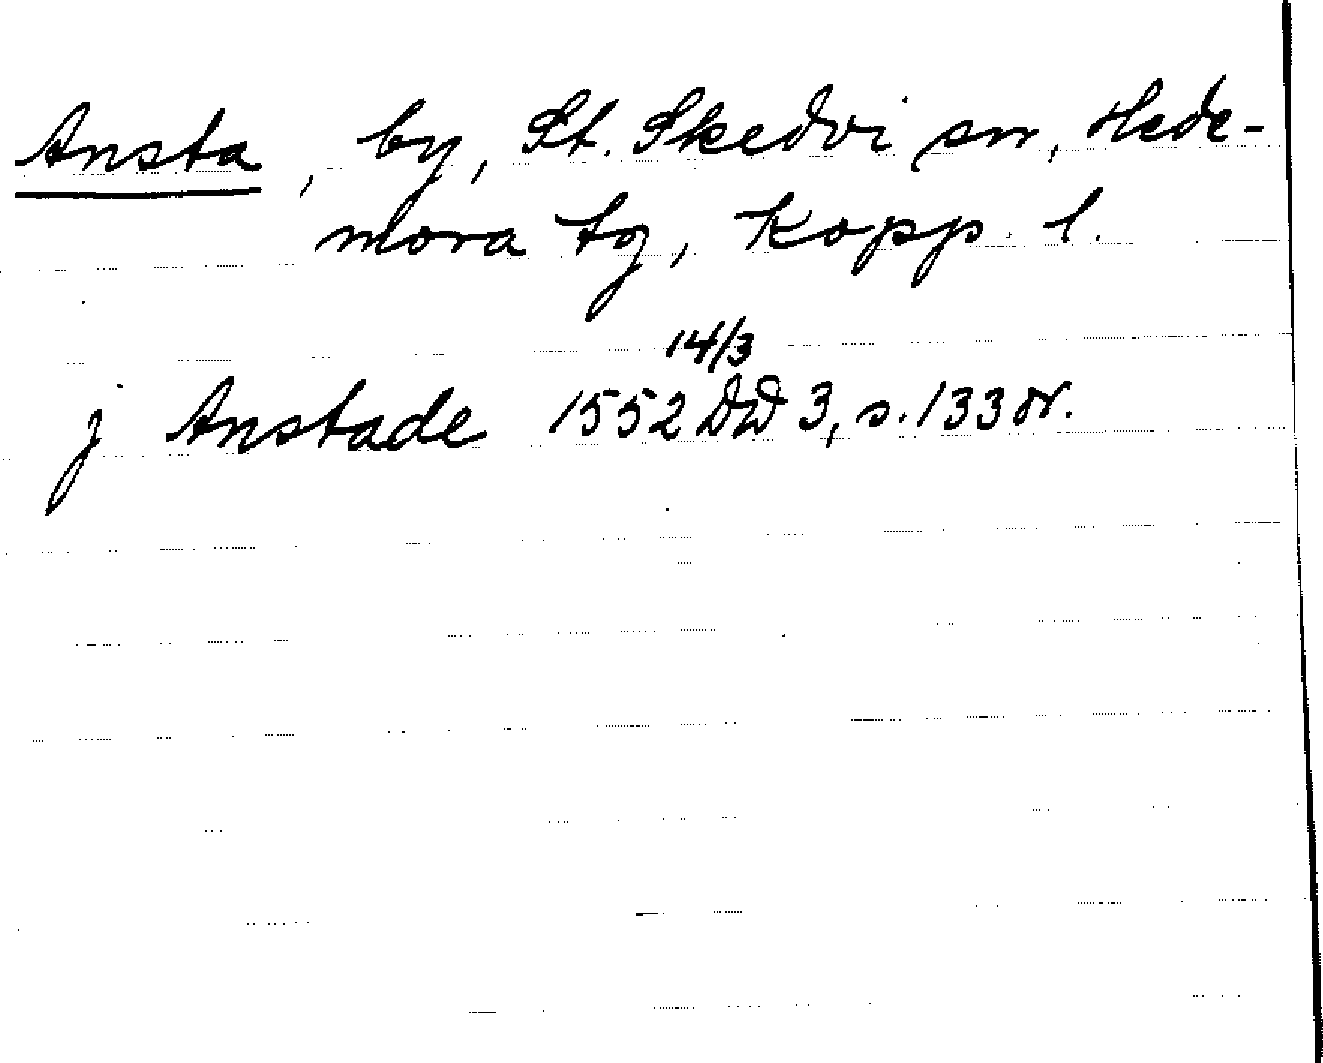 Ansta, by, St. Skedvi sn, Hede-
mora tg, Kopp. l.
14/3
j Anstade 1552 DD 3, s. 133 or.